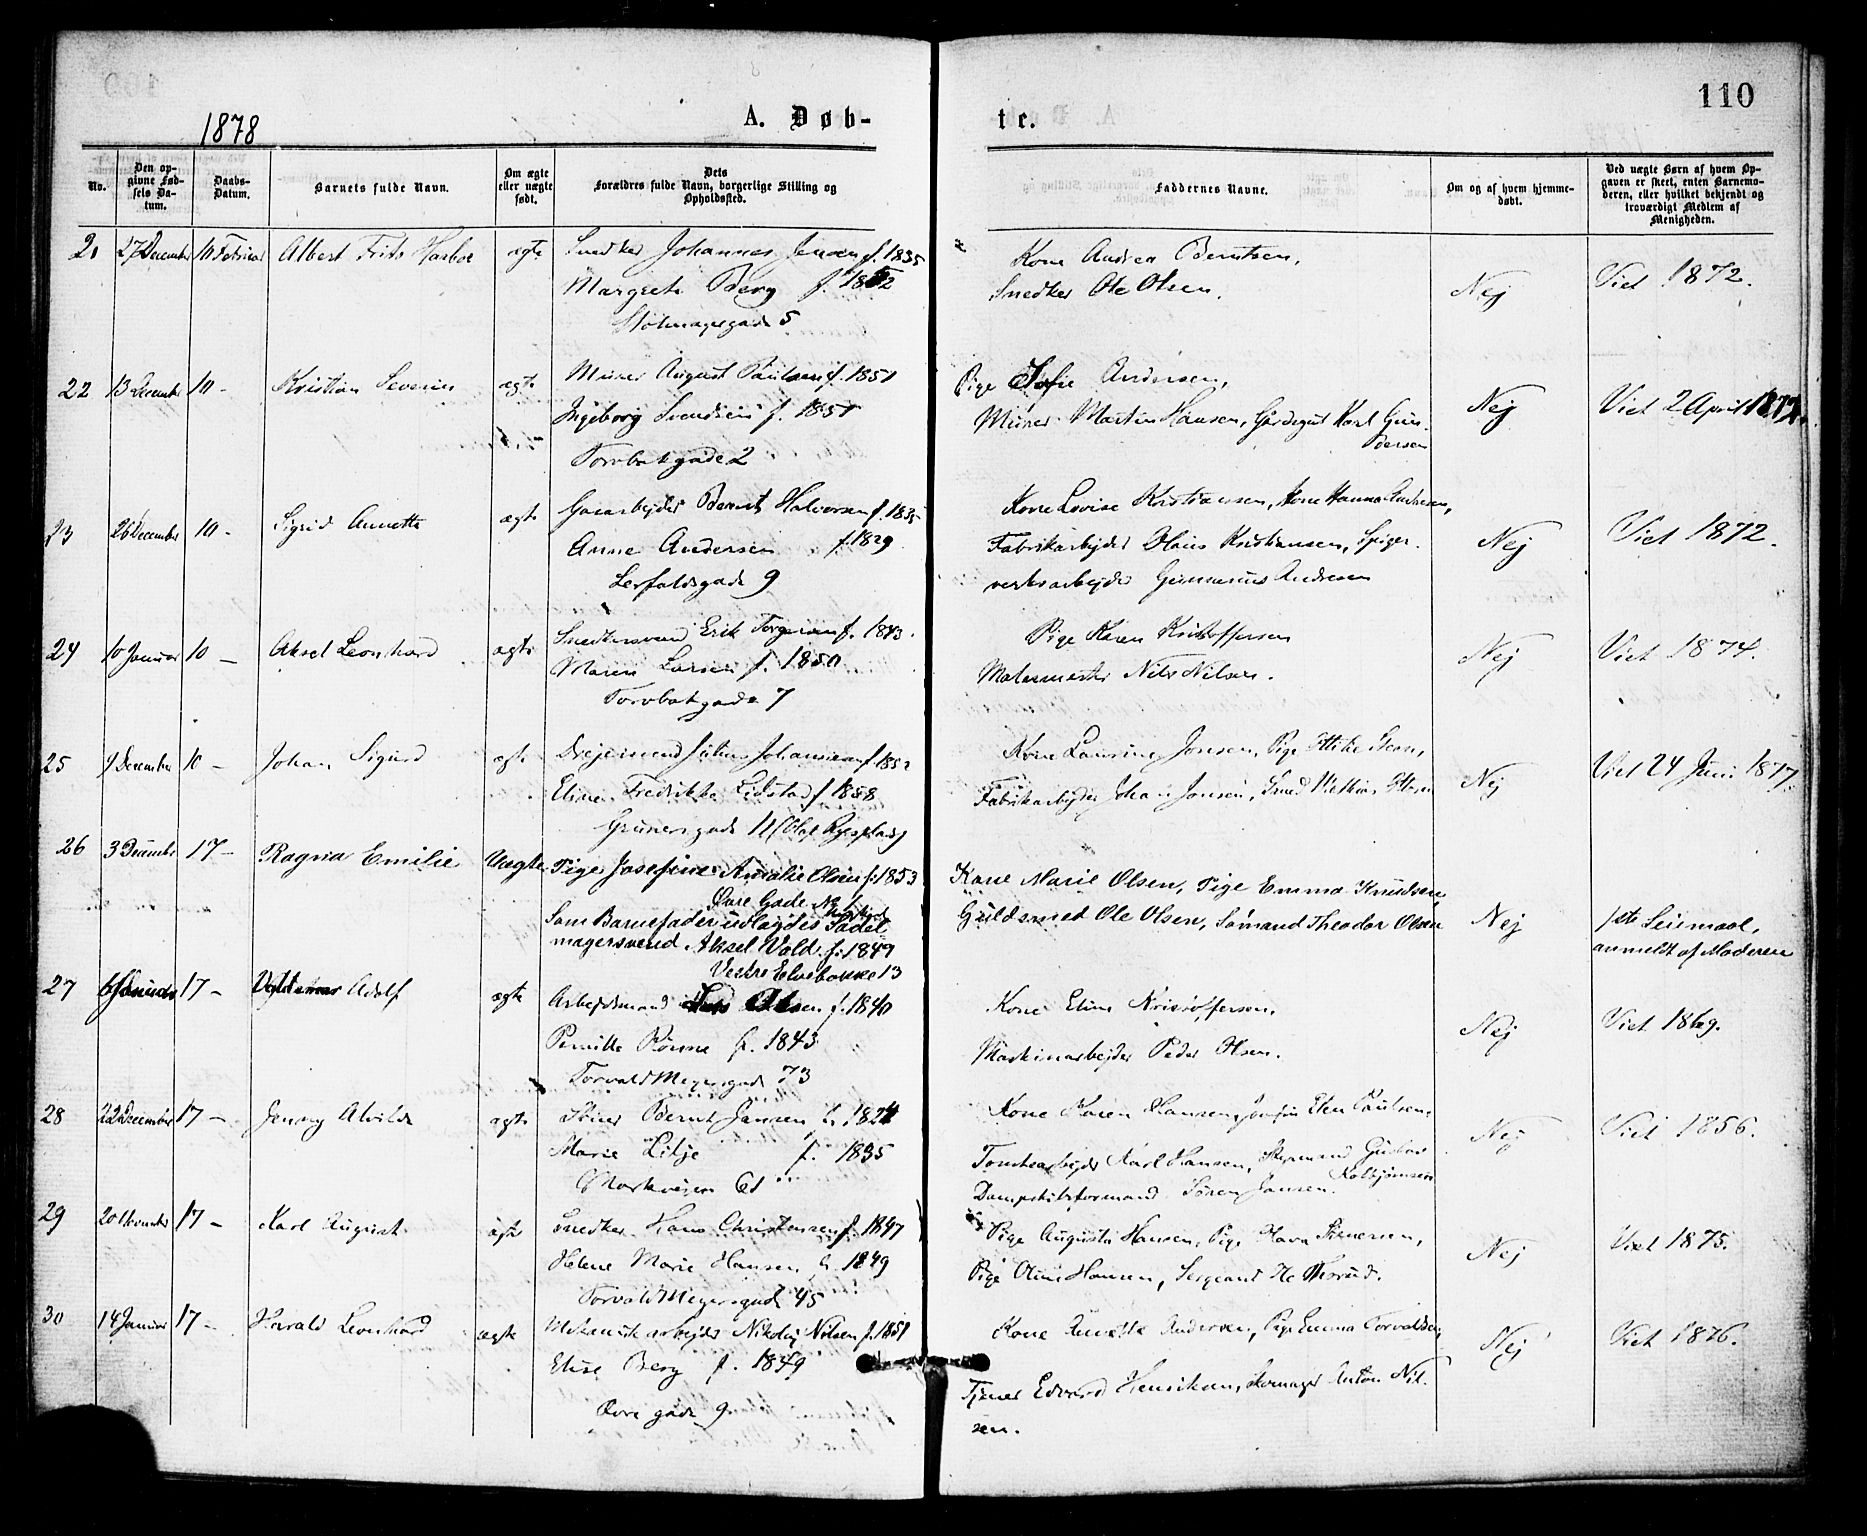 110
1878
A. Døb-
te.
No.
Den op-
givne Fød-
sels Da-
tum.
Daabs-
Datum.
Barnets fulde Navn.
Om ægte
eller uægte
født.
Dets
Forældres fulde Navn, borgerlige Stilling og
Opholdssted.
Faddernes Navne.
Om og af hvem hjemme-
døbt.
Ved uægte Børn af hvem Op-
gaven er skeet, enten Barnemo-
deren, eller hvilket bekjendt og
troværdigt Medlem af
Menigheden.
21 27 December 10 Februar Albert Frits Harboe ægte Snedker Johannes Jensen f. 1835
Margrete Berg f. 1852
5
Kone Andrea Berntsen,
Snedker Ole Olsen.
Nej
Viet 1872.
22 13 December 10 - Kristian Severin ægte Murer August Paulsen f. 1851
Ingeborg Svendsen f. 1851
Torvbakgade 2
Pige Sofie Andersen,
Murer Martin Hansen, Gårdsgut Karl Gun-
dersen
Nej
Viet 2 April
23 26 December 10 - Sigrid Annette ægte Bernt Halvorsen f. 1835
Anne Andersen f. 1829
Lerfaldsgade 9
Kone Lovise Kristiansen, Kone Hanna Andresen,
Fabrikarbejder Hans Kristiansen, Spiger-
verksarbejder Gunnerius Andresen
Nej
Viet 1872.
24 10 Januar 10 - Aksel Leonhard ægte Snedkersvend Erik Torgersen f. 1843.
Maren Larsen f. 1850
Torvbakgade 7
Pige Karen Kristoffersen
Malermester Nils Nilsen.
Nej
Viet 1874.
25 9 December 10 - Johan Sigurd ægte Drejersvend Julius Johansen f. 1852
Eline Fredrikke Lidstad f. 1858
Grünersgade 11 (Olaf Ryesplads)
Kone Laurine Jonsen, Pige
Fabrikarbejder Johan Jonsen, Smed
Nej
Viet 24 Juni 1877.
26 3 December 17 - Ragna Emilie Uægte Pige Josefine Amalie Olsen f. 1853
Øvre Gade No 1
Som Barnefader udlagdes Sadel
magersvend Aksel Vold f. 1849
Vestre Elvebakke 13
Kone Marie Olsen, Pige Emma Knudsen,
Guldsmed Ole Olsen, Sømand Theodor Olsen
Nej
1ste Leiermaal,
anmeldt af Moderen
27 6 Januar 17 - Adolf ægte Arbejdsmand Lars Olsen f. 1840
Pernille Rønne f. 1843
Torvald Meyersgade 73
Kone Eline Kristoffersen,
Maskinarbejder Peder Olsen.
Nej
Viet 1869.
28 22 December 17 - Jenny Alvilde ægte Bernt Jansen f. 1824
Marie Lilje f. 1835
Markvejen 61
Kone Karen Hansen, Jomfru Elen Paulsen,
Karl Hansen, Styrmand Gustav
Kolbjørnsen
Søren Jansen.
Nej
Viet 1856.
29 20 November 17 - Karl August ægte Snedker Hans Christensen f. 1847
Helene Marie Hansen f. 1849
Torvald Meyersgade 45
Pige Augusta Hansen, Pige
Pige Oline Hansen, Sergeant
Nej
Viet 1875.
30 14 Januar 17 - Harald Leonhard ægte Mekanisk arbejder Nikolaj Nilsen f. 1851
Elise Berg f. 1849
Øvre gade 9
Kone Annette Andersen, Pige Emma Torvaldsen,
Tjener Edvard Henriksen, Skomager Anton Nil-
sen.
Nej
Viet 1876.